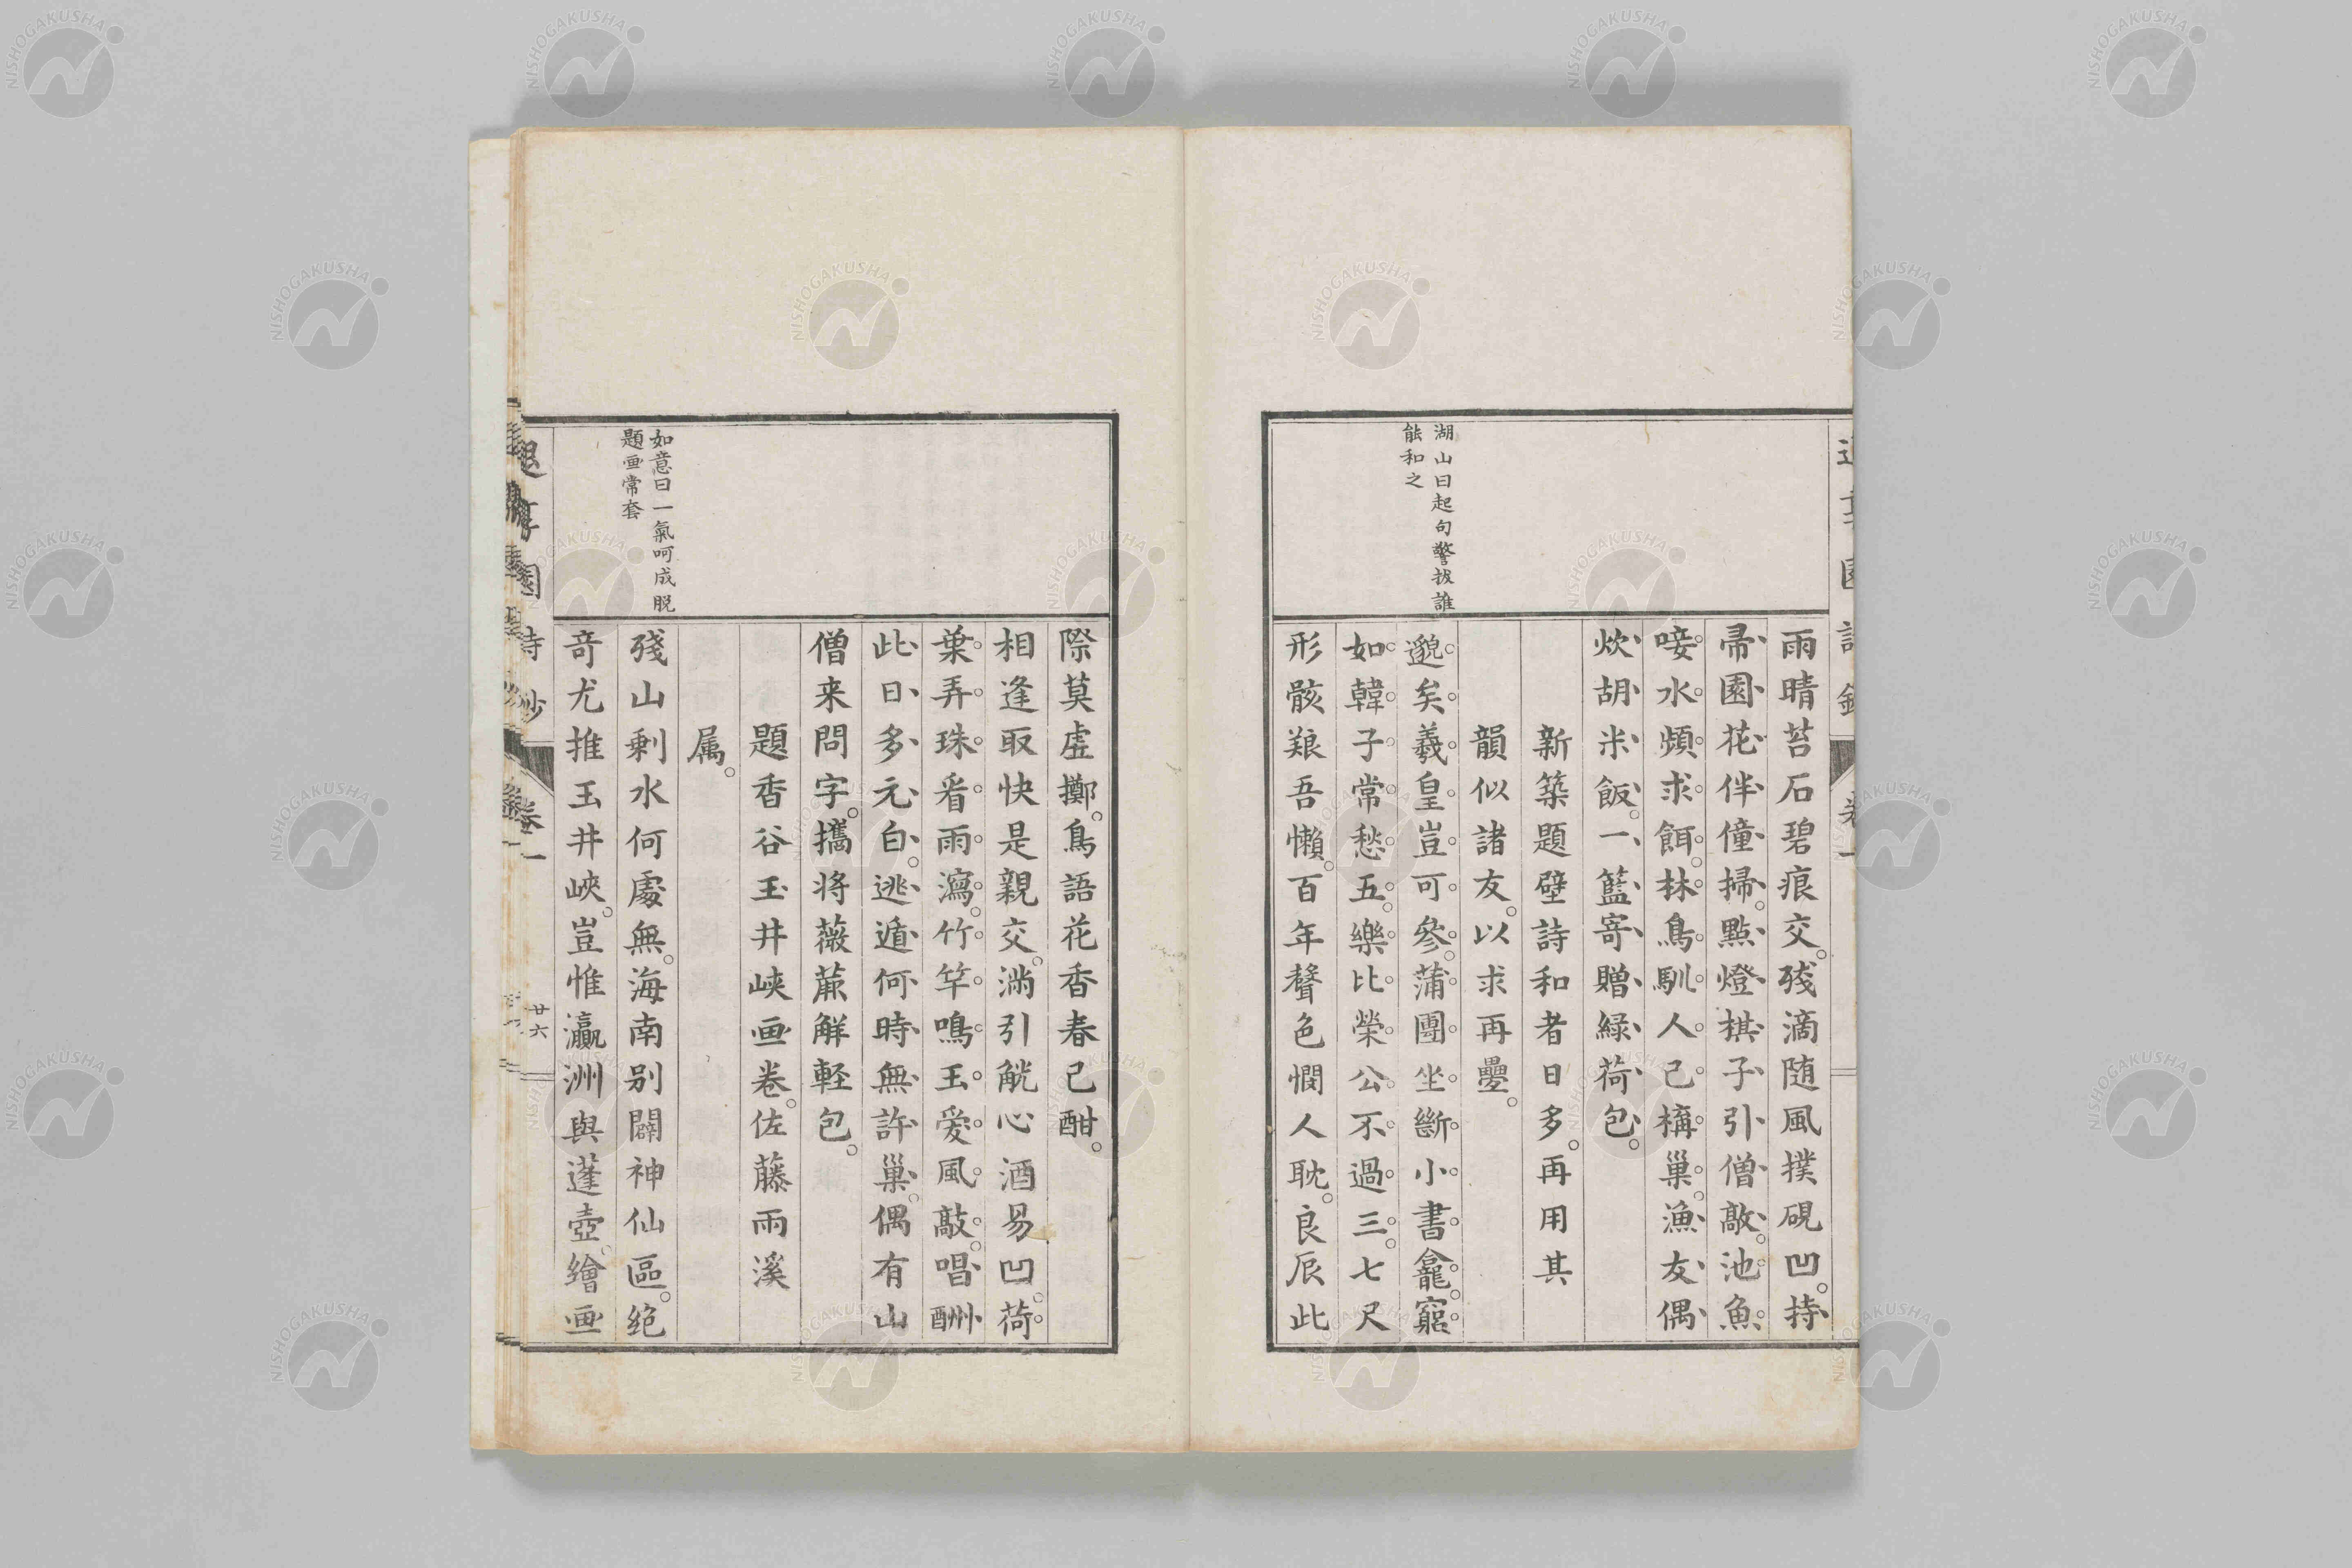 湖山曰起句警拔誰
能和之
雨晴苔石碧痕交。殘滴随風撲硯凹。持
帚園花伴僮掃。點燈棋子引僧敲。池魚
唼水頻求餌。林鳥馴人已構巢。漁友偶
炊胡米飯。一籃寄贈緑荷包。
新築題壁詩和者日多。再用其
韻似諸友。以求再疊。
邈矣羲皇豈可參。蒲團坐斷小書龕。窮
如韓子常愁五。樂比榮公不過三。七尺
形骸艱吾懶。百年聲色憫人耽。良辰此
際莫虚擲。鳥語花香春已酣。
相逢取快是親交。滿引觥心酒易凹。荷
葉弄珠看雨瀉。竹竿鳴玉爱風敲。唱酬
此日多元白。逃遁何時無許巢。偶有山
僧来問字。攜将薇蕨解軽包。
題香谷玉井峡画卷。佐藤雨溪
属。
殘山剰水何處無。海南别闢神仙區。絶
竒尤推玉井峽。豈惟瀛洲與蓬壺。繪画
如意曰一氣呵成脱
題画常套
退享園詩鈔 卷一 廿六
NISHOGAKUSHA